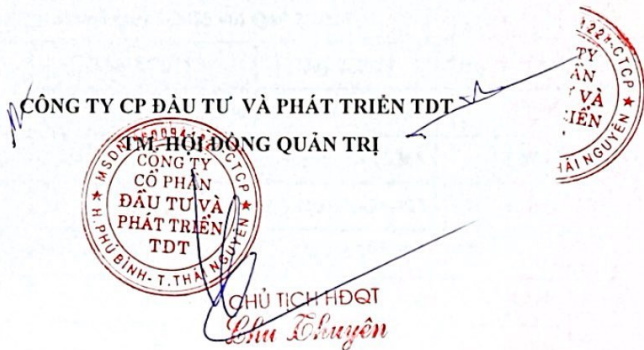 CÔNG TY CP ĐẦU TƯ VÀ PHÁT TRIỂN TDT
TM. HỘI ĐỒNG QUẢN TRỊ
CÔNG TY
CỔ PHẦN
ĐẦU TƯ VÀ
PHÁT TRIỂN
TDT
H. PHÚ BÌNH - T. THÁI NGUYÊN
CHỦ TỊCH HĐQT
Chu Thuyên